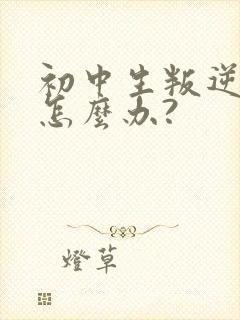 初中生叛逆
怎麼办?
燈草